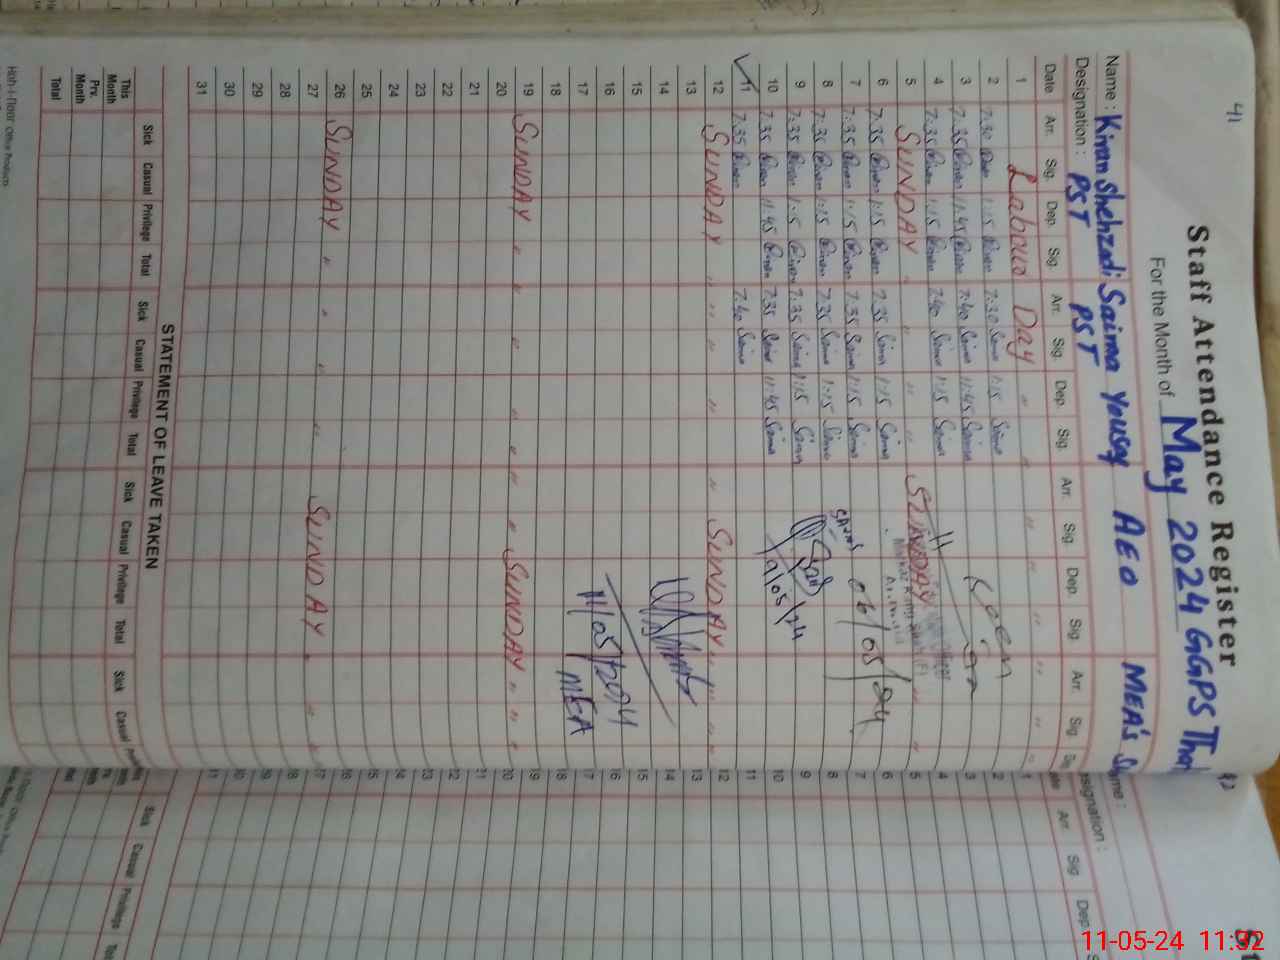 41
Staff Attendance Register
For the Month of May 2024 GGPS
Name : Kiran Shehzadi Saima Yousaf AEO MEA's
Designation : PST PST
Date Arr. Sig. Dep. Sig. Arr. Sig. Dep. Sig. Arr. Sig. Dep. Sig. Arr. Sig.
1 Labour Day " " " " " "
2 7:30 1:15 Kiran 7:30 Saima 1:15 Saima
3 7:35 Kiran 11:45 Kiran 7:40 Saima 11:45 Saima
4 7:35 Kiran 1:15 Kiran 7:40 Saima 1:15 Saima
5 SUNDAY " " " " SUNDAY " "
6 7:35 Kiran 1:15 Kiran 7:35 Saima 1:15 Saima
7 7:35 Kiran 1:15 Kiran 7:35 Saima 1:15 Saima 06/05/24
8 7:35 Kiran 1:15 Kiran 7:30 Saima 1:15 Saima
9 7:35 Kiran 1:15 Kiran 7:35 Saima 1:15 Saima
10 7:35 Kiran 11:45 Kiran 7:35 Saima 11:45 Saima 9/05/24
11 7:35 Kiran 7:40 Saima
12 SUNDAY " " " " " SUNDAY " " " "
13
14
15
16
17 11/05/2024
18 MEA
19 SUNDAY " " " " " " SUNDAY " " "
20
21
22
23
24
25
26 SUNDAY " " " " SUNDAY " " "
27
28
29
30
31
STATEMENT OF LEAVE TAKEN
Sick Casual Privilege Total Sick Casual Privilege Total Sick Casual Privilege Total Sick Casual
This Month
Prv. Month
Total
42
Designation :
Arr. Sig. Dep.
1
2
3
4
5
6
7
8
9
10
11
12
13
14
15
16
17
18
19
20
21
22
23
24
25
26
27
28
29
30
31
Sick Casual Privilege
11-05-24 11:32